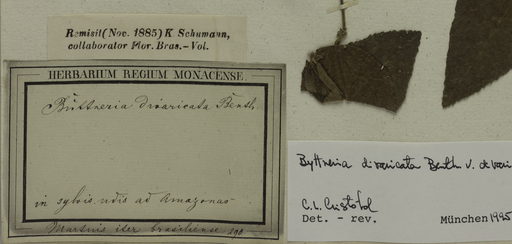 Remisit (Nov. 1885) K Schumann,
collaborator Flor. Bras. - Vol.
HERBARIUM REGIUM MONACENSE.
Büttneria divaricata Benth.
in sylvis udis ad Amazonas
Martius iter brasiliense
Byttneria divaricata Benth. v. divari
C.L. Cristóbal
Det. - rev. München 1995